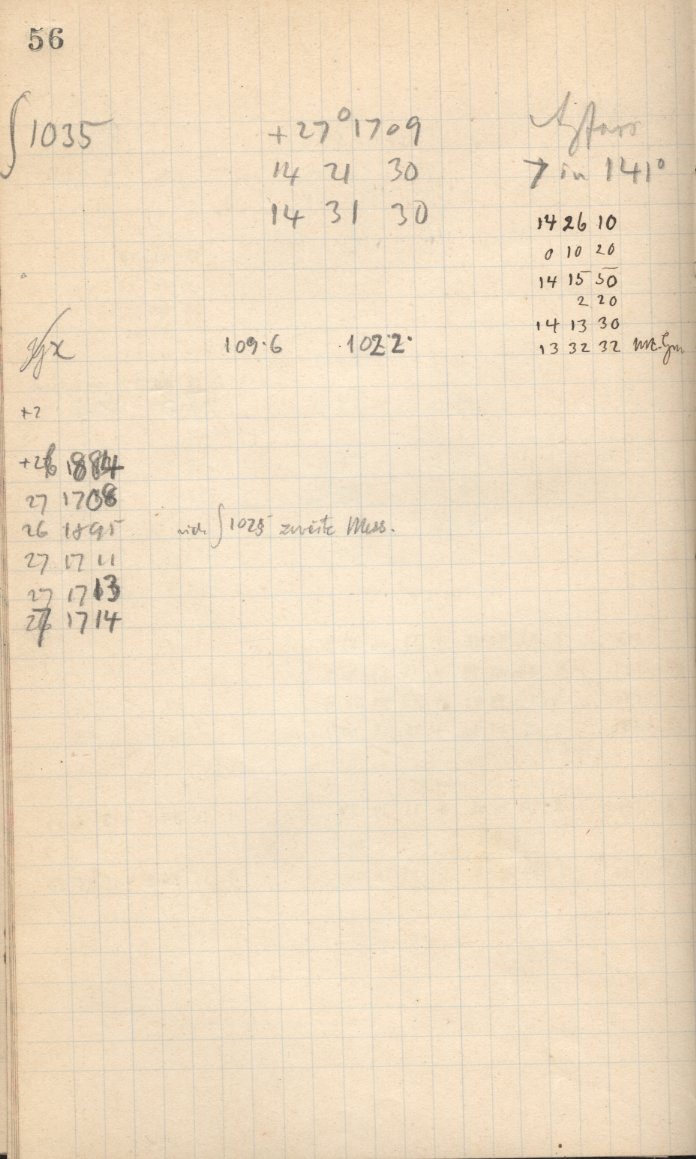 56
∫1035
+27° 1709
14 21 30
14 31 30
7 in 141°
14 26 10
0 10 20
14 15 50
2 20
14 13 30
13 32 32
109.6 102.2.
+2
+26 1884
27 1708
26 1895
∫1025 zweite Mess.
27 1711
27 1713
27 1714